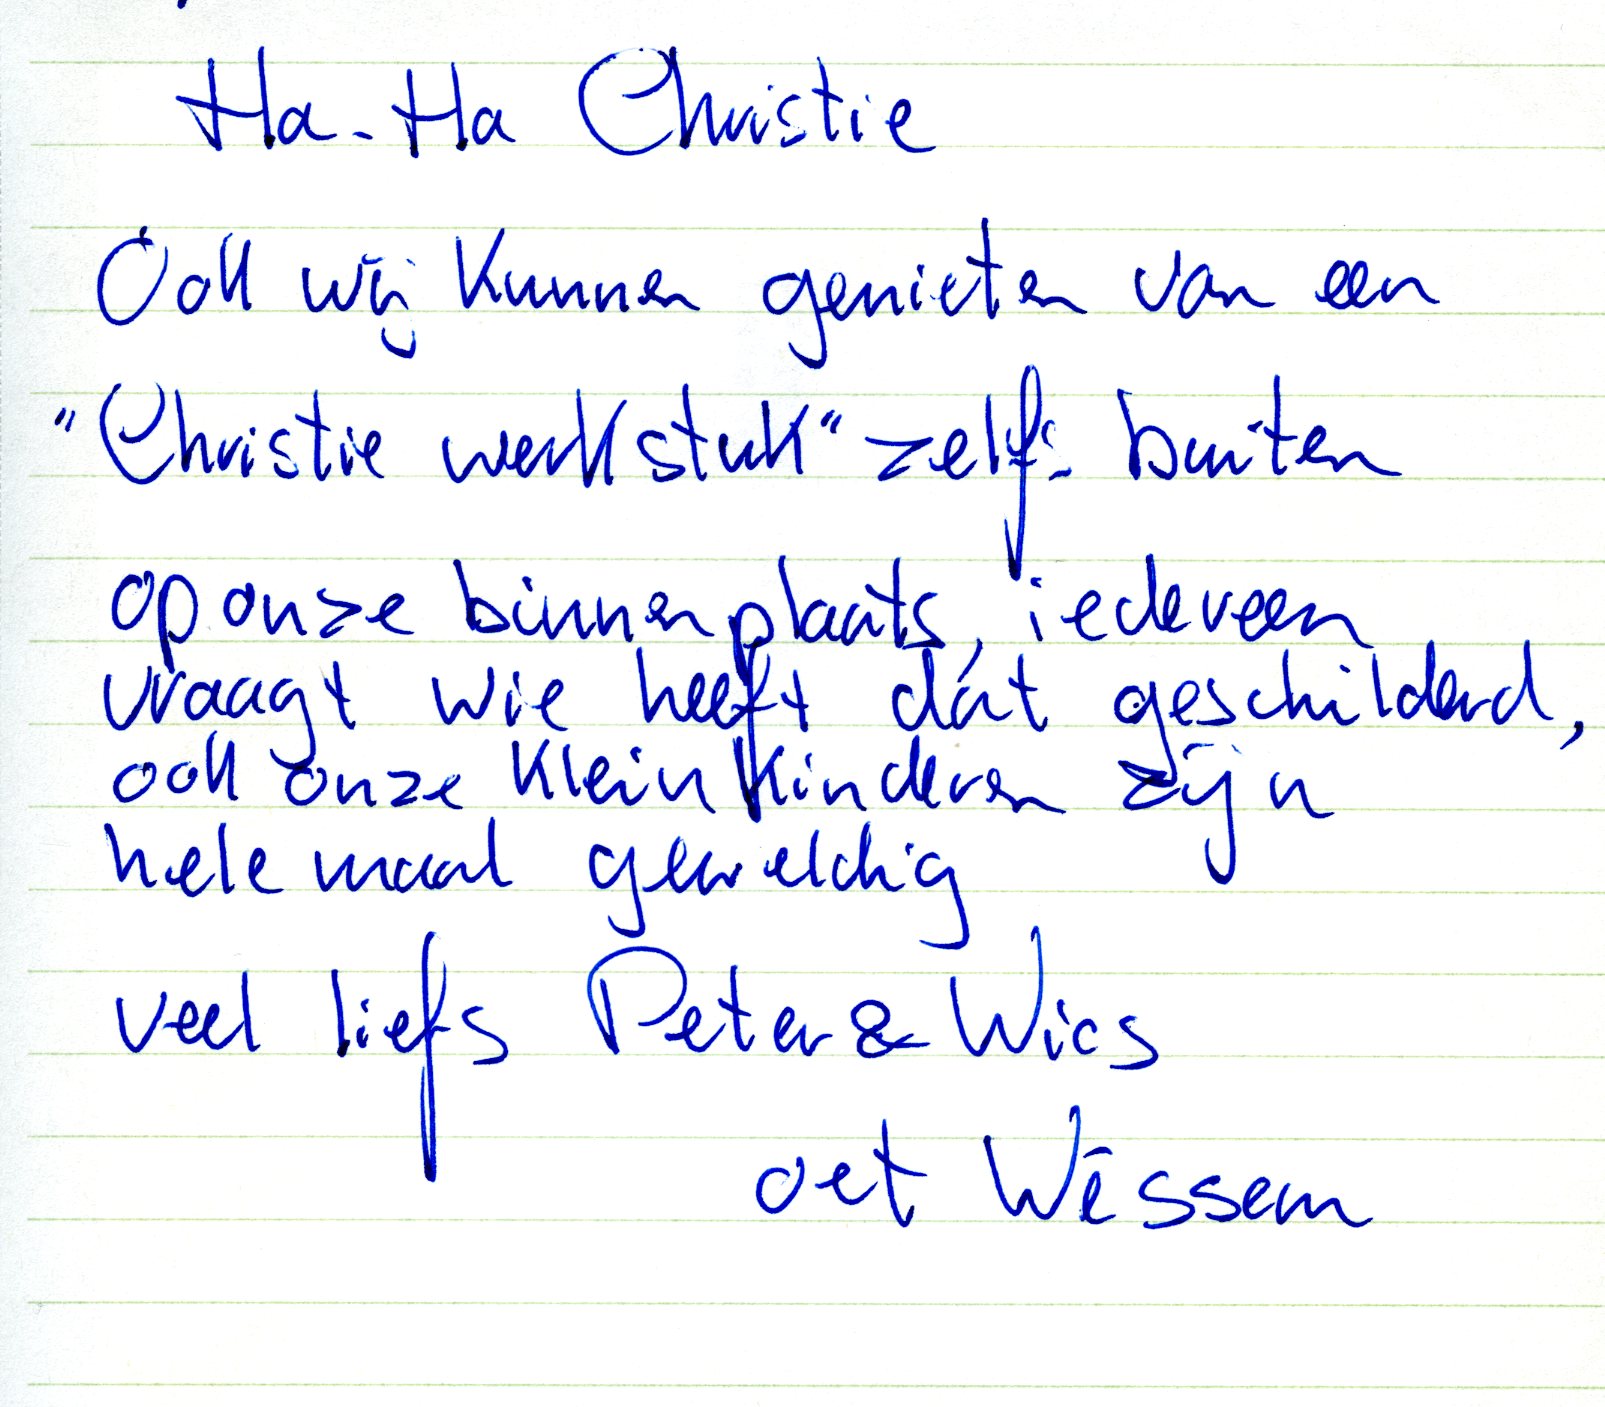 Ha-Ha Christie
Ook wij kunnen genieten van een
"Christie werkstuk" zelfs buiten
op onze binnenplaats, iedereen
vraagt wie heeft dát geschilderd,
ook onze kleinkinderen zijn
helemaal geweldig
veel liefs Peter & Wies
oet Wéssem